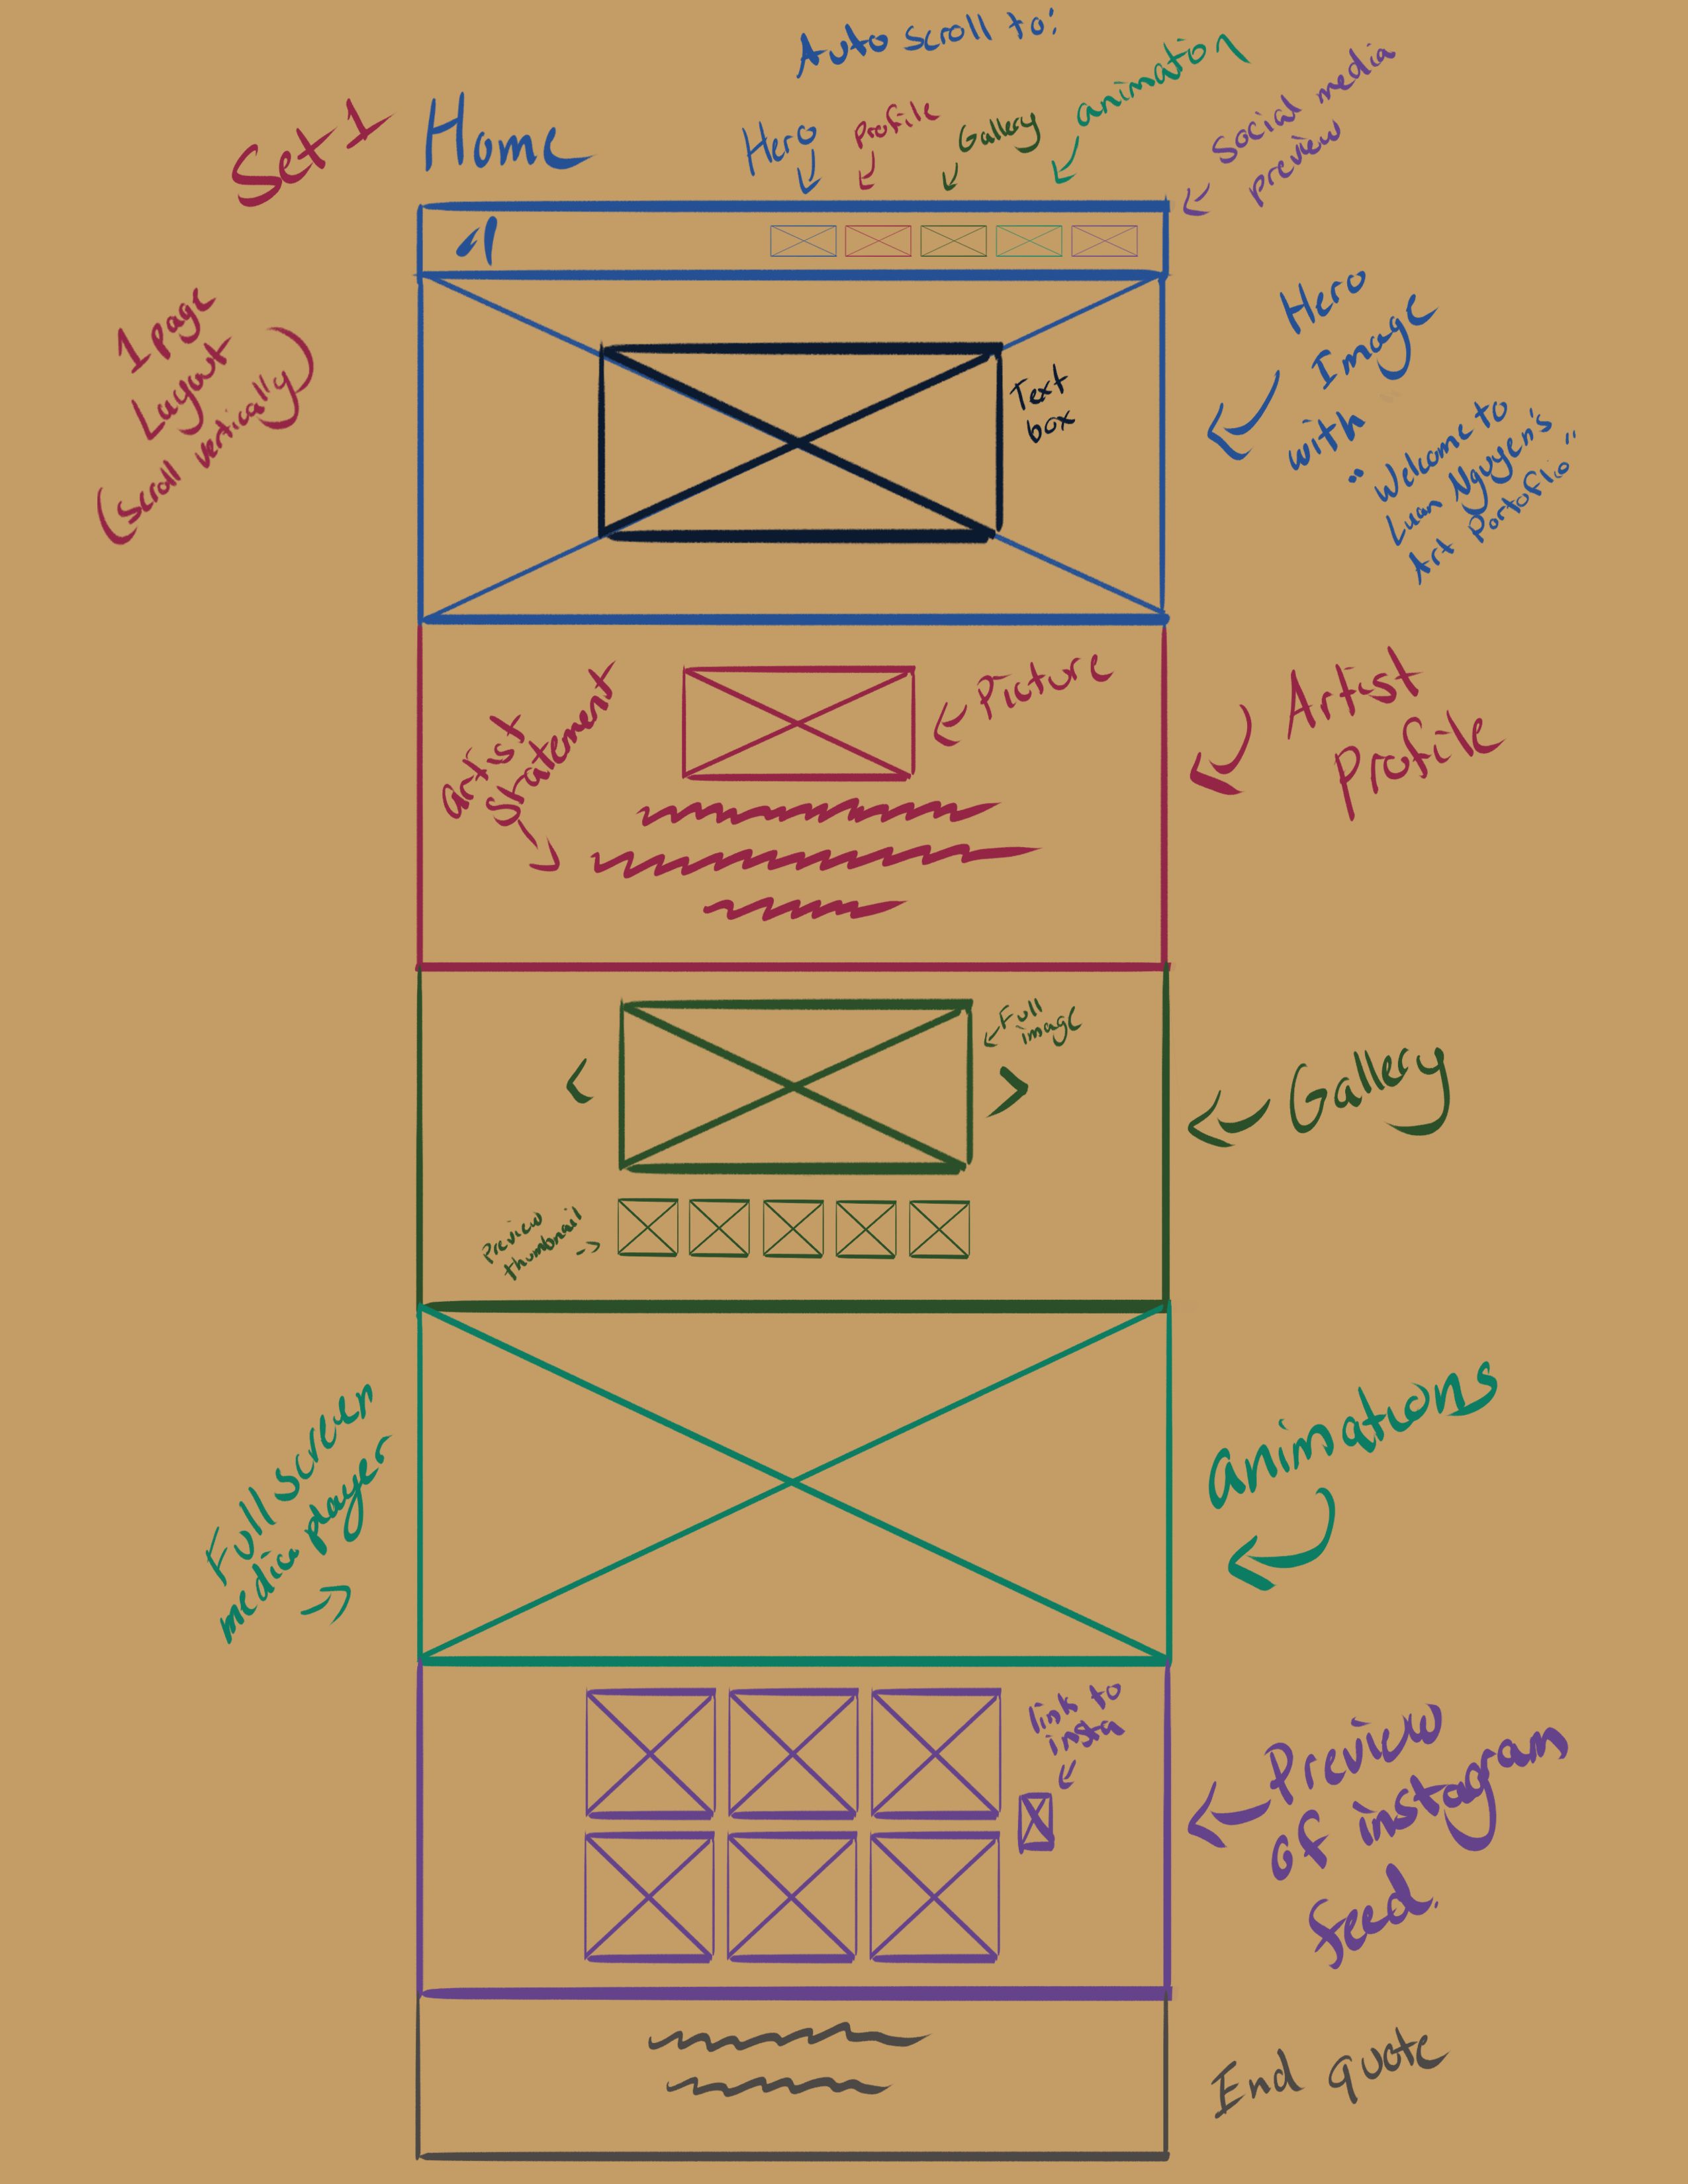 Auto scroll to:
Set 1
Home
Hero
Profile
Gallery
animation
Social media
preview
1 page
Layout
(Scroll vertically)
Text
box
Hero
Image
with
"Welcome to
Luan Nguyen's
Art Portoflio"
Artist
Statement
Picture
Artist
Profile
Full
image
Gallery
Preview
thumbnail
Full screen
media player
animations
link to
insta
Preview
of instagram
feed.
End quote